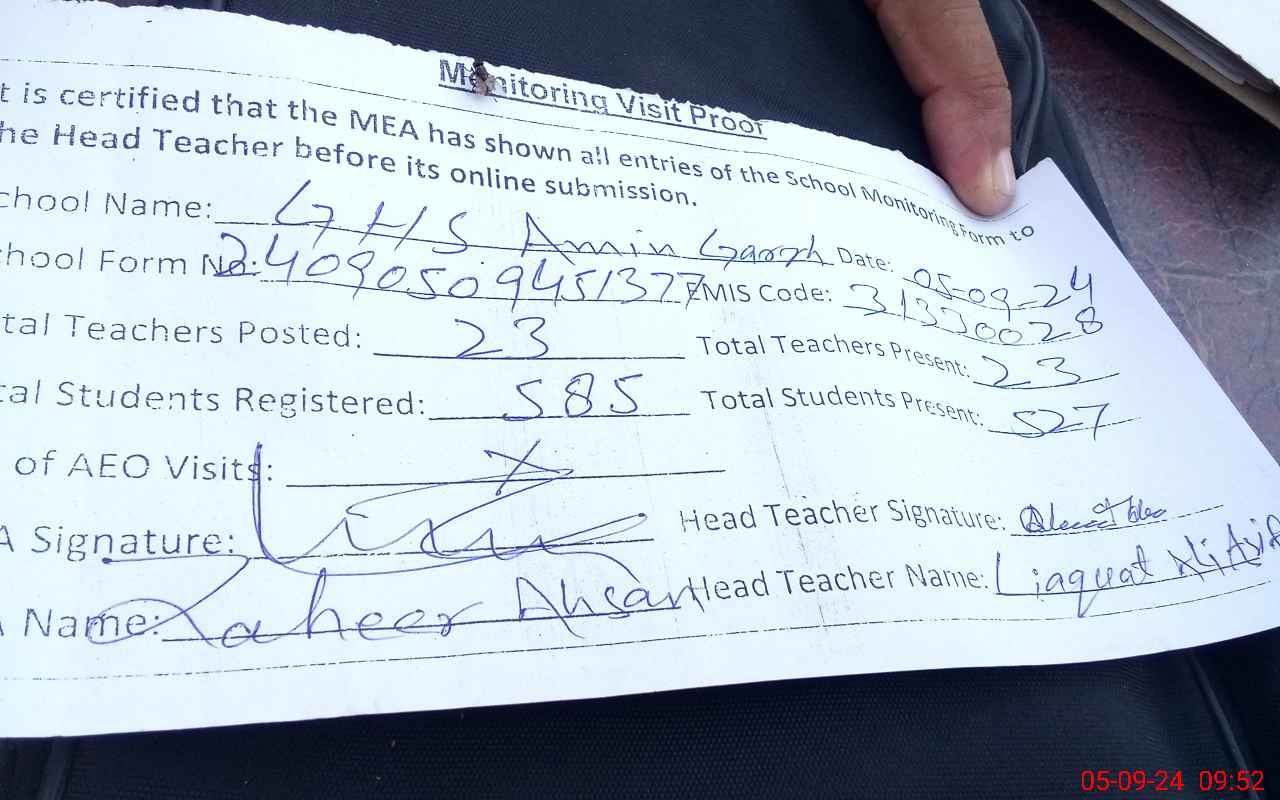 Monitoring Visit Proof
t is certified that the MEA has shown all entries of the School Monitoring Form to
he Head Teacher before its online submission.
chool Name: GHS Amin Garh Date: 05-09-24
hool Form No: 24090509451377 EMIS Code: 31330028
tal Teachers Posted: 23 Total Teachers Present: 23
tal Students Registered: 585 Total Students Present: 527
of AEO Visits: X
A Signature: Head Teacher Signature:
Name: Zaheer Ahsan Head Teacher Name: Liaquat Ali Asif
05-09-24 09:52